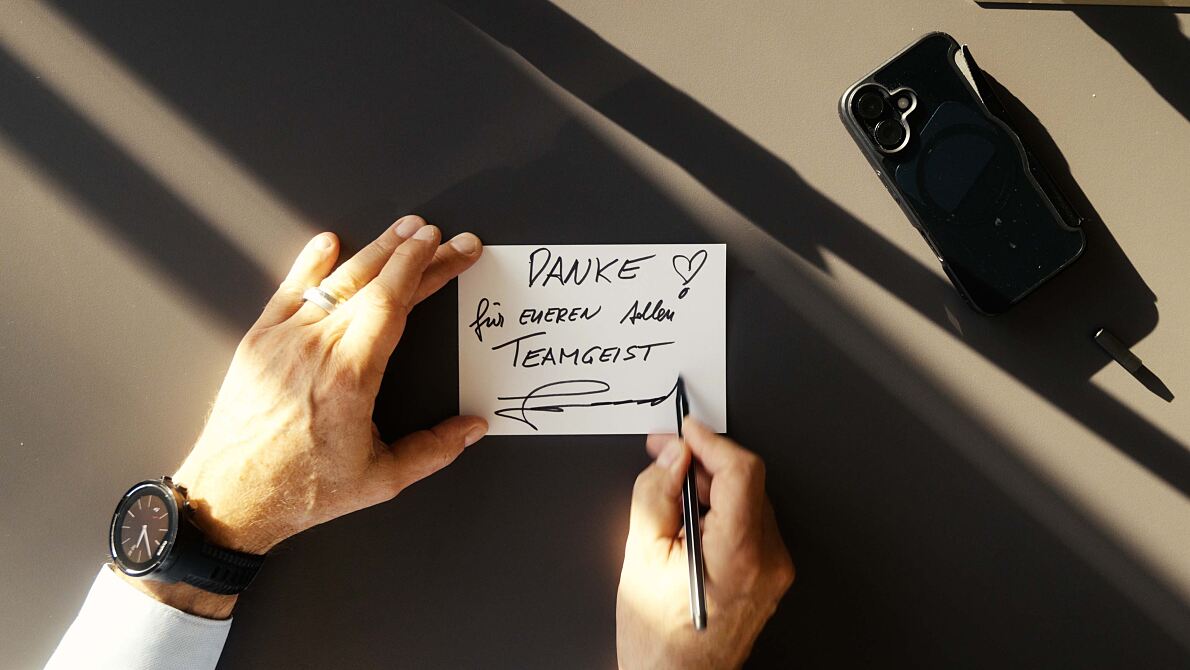 DANKE
für EUEREN tollen
TEAMGEIST